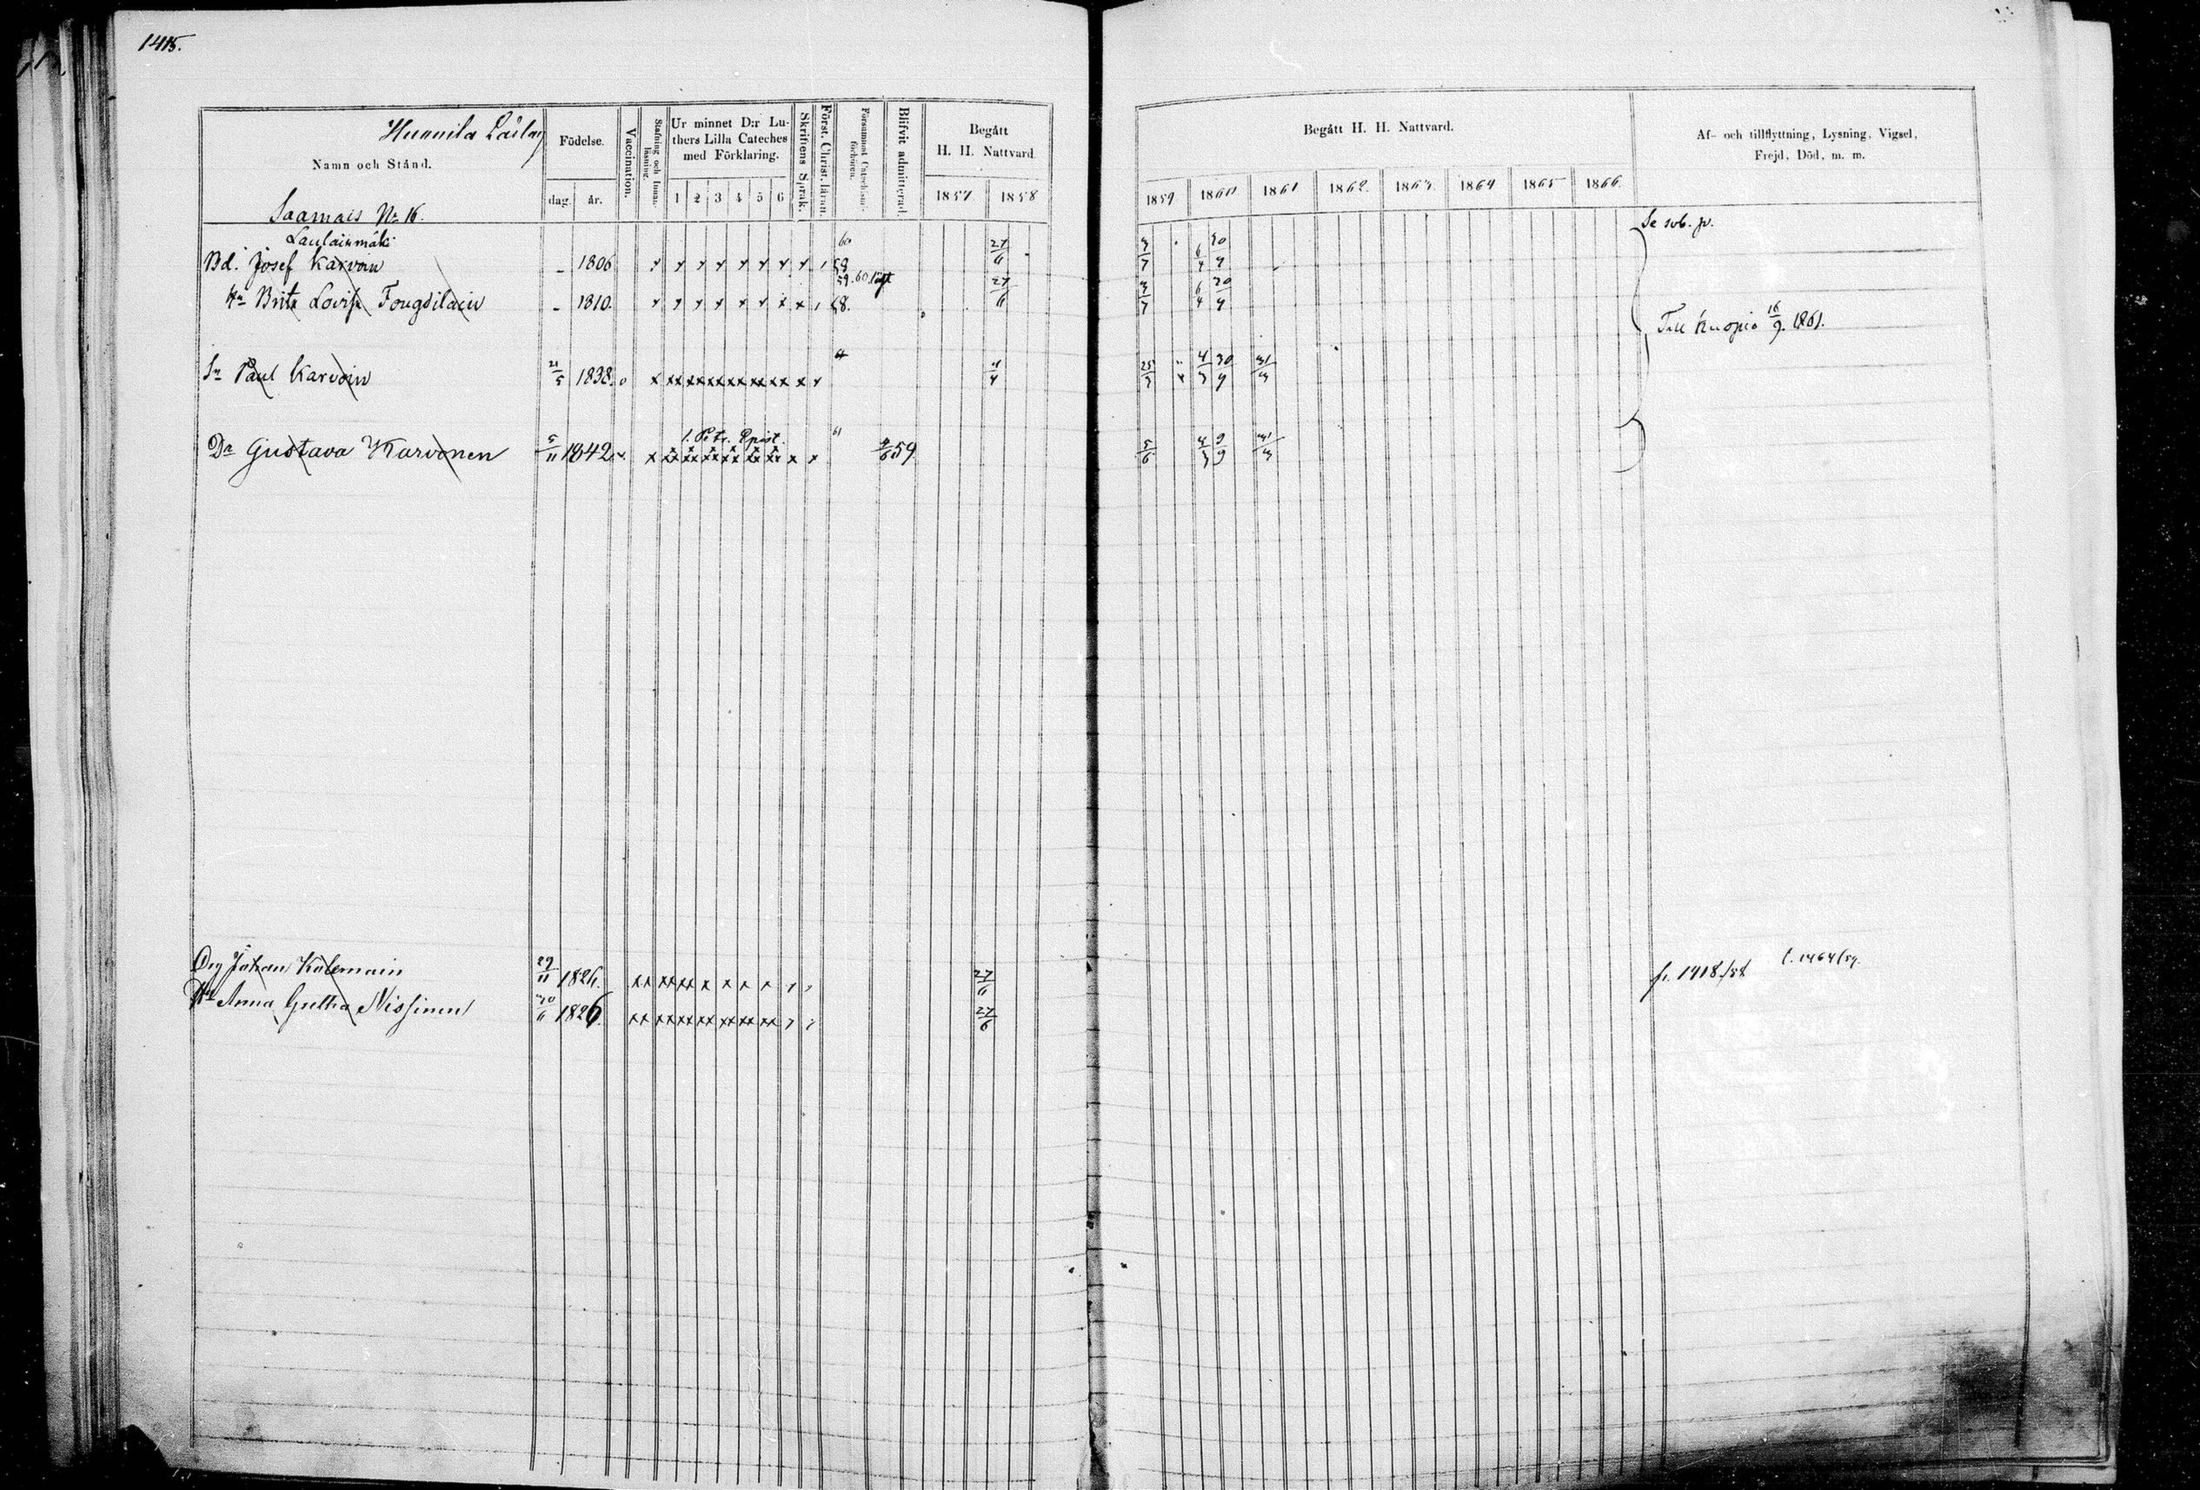 1415.
Hunnila Läslag
Namn och Stånd.
Födelse.
dag. år.
Vaccination.
Stafning och Innanläsning.
Ur minnet D:r Luthers Lilla Cateches med Förklaring.
1 2 3 4 5 6
Skriftens Språk.
Först. Christ. läran.
Försummat Catechismiförhören.
Blifvit admitterad.
Begått H. H. Nattvard.
1857 1858
Begått H. H. Nattvard.
1859 1860 1861 1862 1863 1864 1865 1866
Af- och tillflyttning, Lysning, Vigsel, Frejd, Död, m. m.
Saamais No 16.
Laulainmäki
Se sub. p.
Bd. Josef Karvoin - 1806 60 59 27/6 3/7 6/4 30/9
Hu Brita Lovisa Fougdilain - 1810. 59. 60. 58. 27/6 3/7 6/4 30/9
Till Kuopio 16/9. 1861.
Sn Paul Karvoin 21/5 1838 4/3 30/9 31/3
1. Petr. Epist. 61
Dr Gustava Karvonen 5/11 1842 59 5/6 4/3 9/9 31/3
Drg Johan Kolemain 29/11 1826. 27/6 fr. 1418/58 t. 1464/59.
Hu Anna Gretha Nissinen 30/11 1826. 27/6